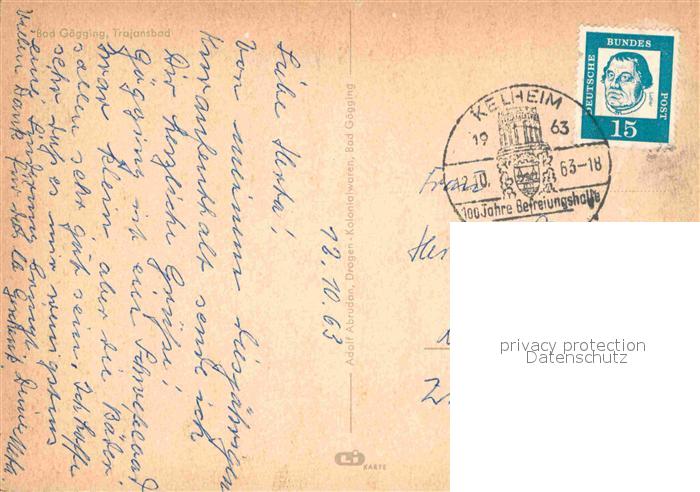 Bad Gögging, Trajansbad
12.10.63
Liebe Herta!
Von meinem diesjährigen
Kuraufenthalt sende ich
Dir herzliche Grüße!
Gögging ist ein Schwefelbad
zwar klein aber die Bäder
sollen sehr gut sein. Ich hoffe
sehr daß es mir wenigstens
eine Linderung bringt.
Vielen Dank für Deine
Adolf Abrudan, Drogen-Kolonialwaren, Bad Gögging
Li
KARTE
DEUTSCHE BUNDES POST
15
KELHEIM
19 63
12.10. 63-18
100 Jahre Befreiungshalle
Frau
privacy protection
Datenschutz